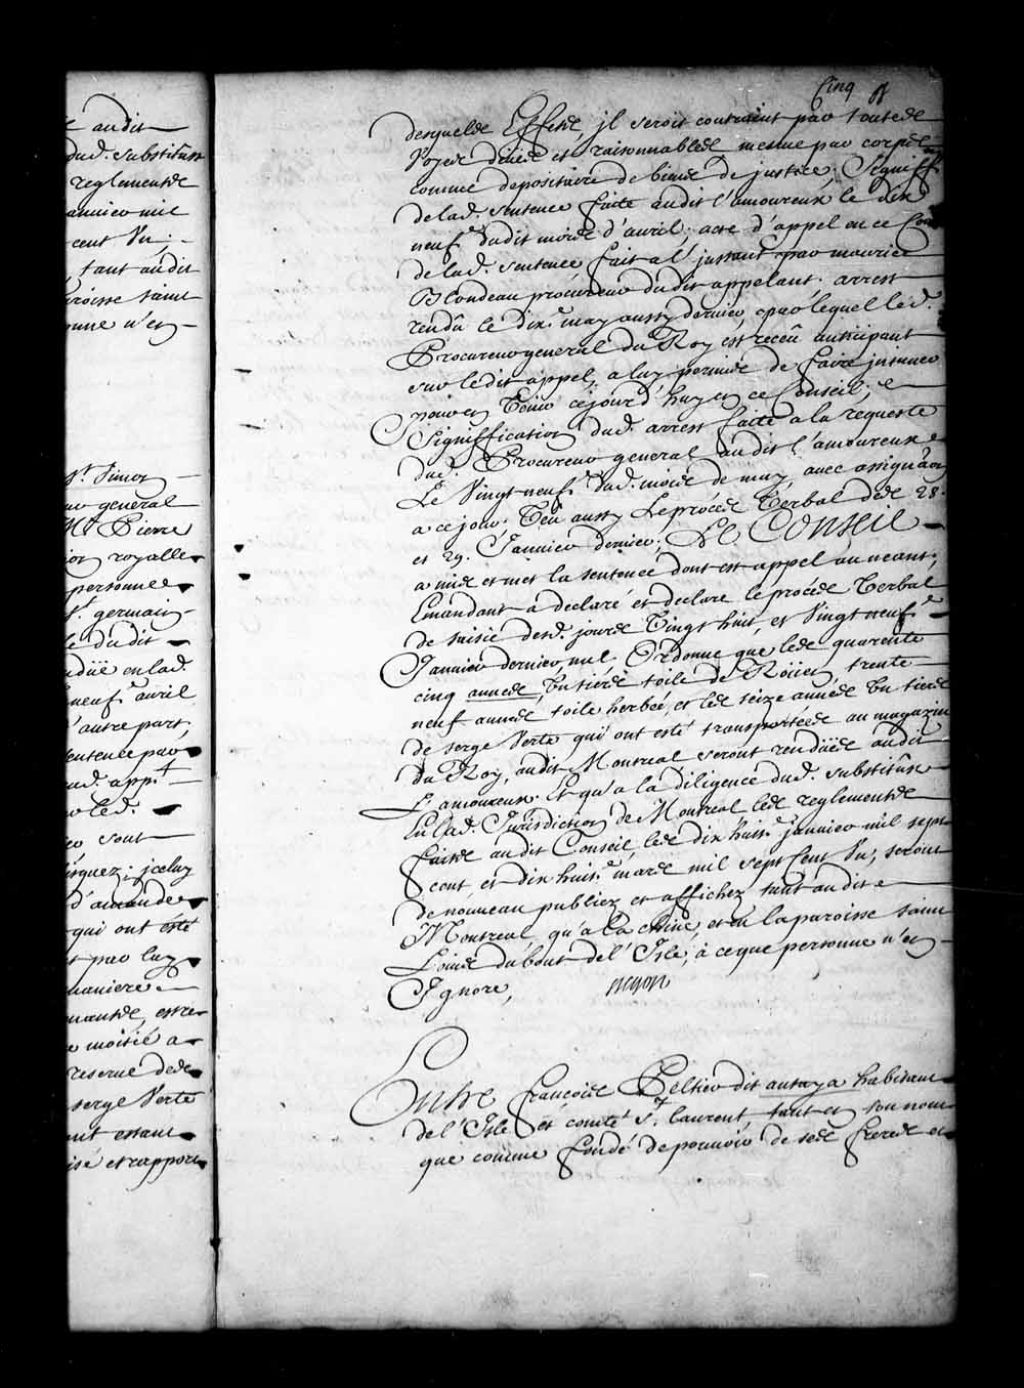 audit
dud. substitut
reglements
janvier mil
cent Un ;
tant audit
paroisse saint
n'en
St. Simon
general
Mr. Pierre
royalle
personnes
St. germain
dudit
en lad.
neuf.e avril
d'autre part,
sentence par
app.t
led.
sont
jceluy
d'amande
qui ont esté
par luy
maniere
estre
moitié a
reserve desd.
serge Verte
estant
et rapport
Cinq
desquels Effets, jl seroit contraint par toutes
Voyes deües et raisonnables mesme par corps
comme depositaire de biens de justice ; Signiff.
de lad. sentence faite audit l'amoureux le dix
neuf.e dudit mois d'avril ; acte d'appel en ce Con
de lad. sentence fait a l'jnstant par maurice
Blondeau procureur dudit appelant. arrest
rendû le dix.e may aussy dernier, par lequel led.
Procureur general du Roy est receû anticipant
sur ledit appel, a luy permis de faire jntimer
pour en Venir cejourd'huy en ce Conseil ;
Signiffication dud. arrest faite a la requeste
dud. Procureur general audit l'amoureux
Le Vingt neuf.e dud. mois de may, avec assignaon
a ce jour. Veu aussy Le procés Verbal des 28.
et 29. Janvier dernier ; Le Conseil
a mis et met la sentence dont est appel au neant ;
Emandant a declaré et declare le procés Verbal
de saisie desd. jours Vingt huit, et Vingt neuf.e
Janvier dernier, nul, Ordonne que les quarente
cinq aunes, Un tiers toile de Roüen, trente
neuf aunes toile herbée, et les seize aunes Un tiers
de serge Verte qui ont esté transportées au magazin
du Roy, audit Montreal seront rendües audit
L'amoureux. Et qu'a la diligence dud. substitut
En lad. Jurisdiction de Montreal les reglements
faits audit Conseil, les dix huit.e janvier mil sept
cent, et dix huit.e mars mil sept Cent Un, seront
de nouveau publiez et affichez tant audit
Montreal, qu'a la chine, et en la paroisse saint
Loüis du bout de l'Isle, à ce que personne n'en
Jgnore,
Entre françois Peltier dit antaya habitant
de l'Isle et comté St. laurent, tant en son nom
que comme fondé de pouvoir de ses freres et